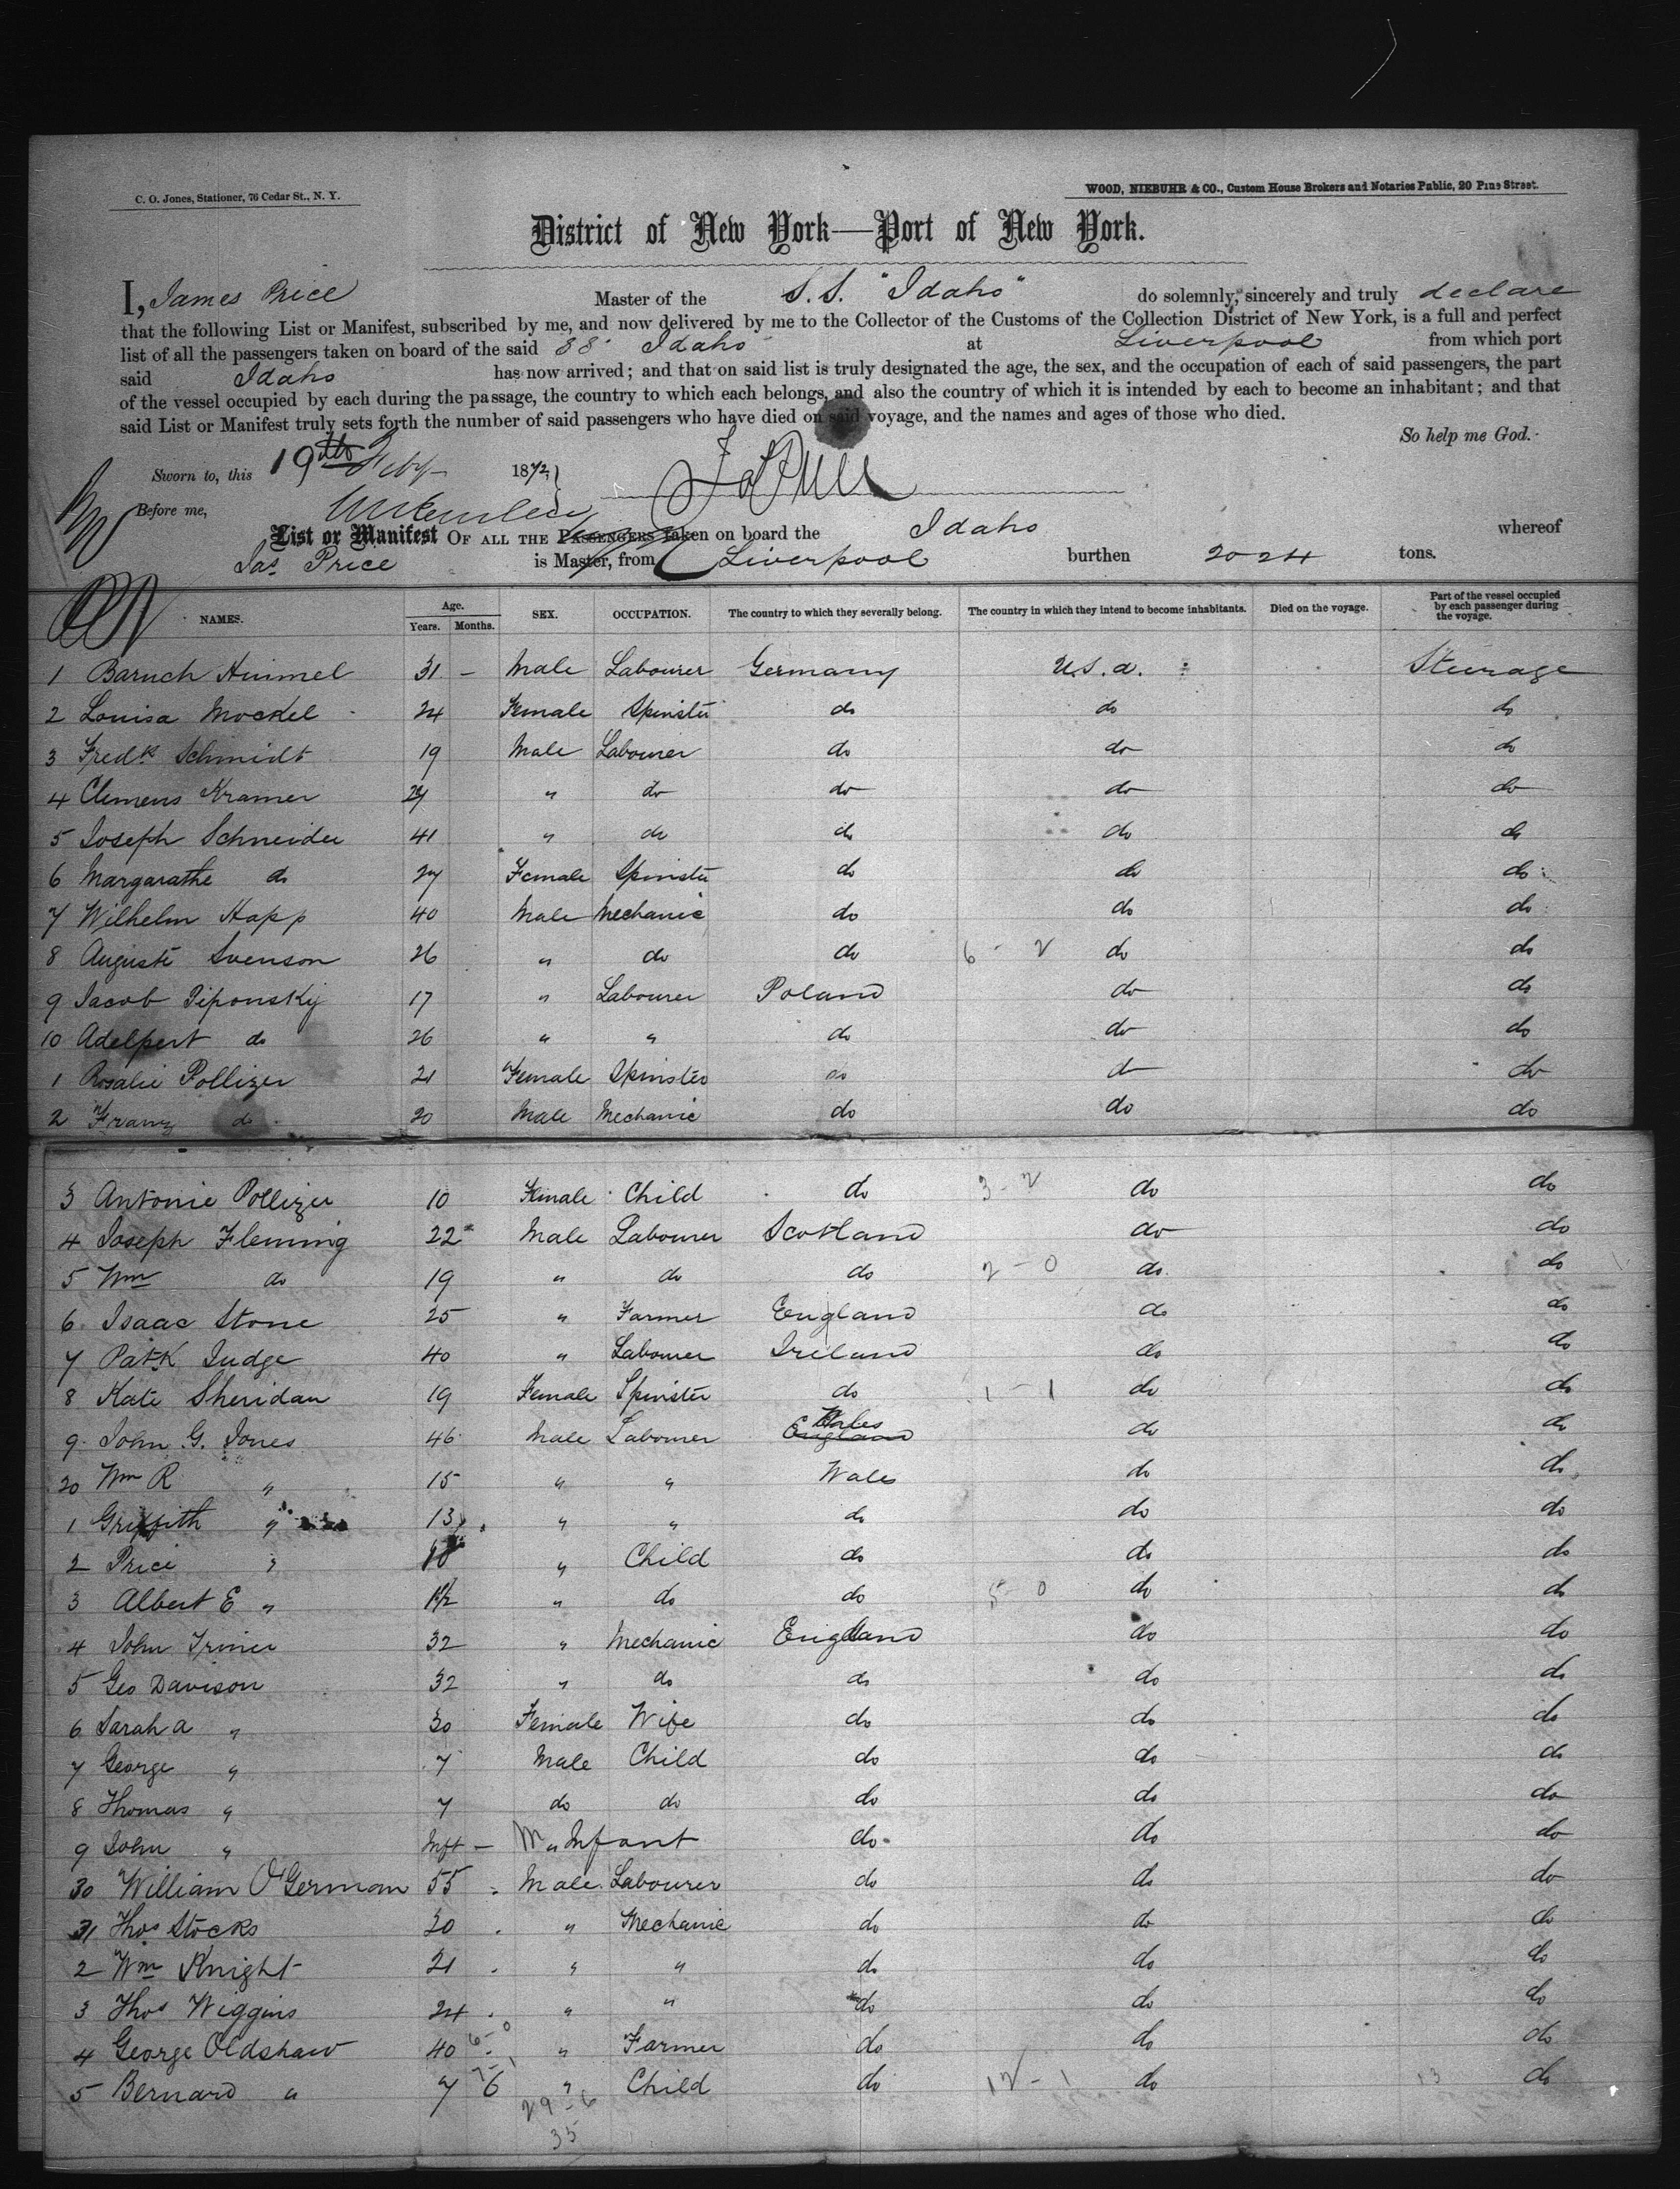 C. O. Jones, Stationer, 76 Cedar St., N. Y.
WOOD, NIEBUHR & CO., Custom House Brokers and Notaries Public, 20 Pine Street.
District of New York—Port of New York.
I, James Price Master of the S.S. "Idaho" do solemnly, sincerely and truly declare
that the following List or Manifest, subscribed by me, and now delivered by me to the Collector of the Customs of the Collection District of New York, is a full and perfect
list of all the passengers taken on board of the said SS Idaho at Liverpool from which port
said Idaho has now arrived; and that on said list is truly designated the age, the sex, and the occupation of each of said passengers, the part
of the vessel occupied by each during the passage, the country to which each belongs, and also the country of which it is intended by each to become an inhabitant; and that
said List or Manifest truly sets forth the number of said passengers who have died on said voyage, and the names and ages of those who died.
So help me God.
Sworn to, this 19th Feby 1872
Before me,
List or Manifest OF ALL THE PASSENGERS taken on board the Idaho whereof
Jas Price is Master, from Liverpool burthen 2024 tons.
NAMES. Age. Years. Months. SEX. OCCUPATION. The country to which they severally belong. The country in which they intend to become inhabitants. Died on the voyage. Part of the vessel occupied by each passenger during the voyage.
1 Baruch Himmel 31 – Male Labourer Germany U.S.a. Steerage
2 Louisa Mockel 24 Female Spinster do do do
3 Fredk Schmidt 19 Male Labourer do do do
4 Clemens Kramer 24 " do do do do
5 Joseph Schneider 41 " do do do do
6 Margarathe do 27 Female Spinster do do do
7 Wilhelm Happ 40 Male Mechanic do do do
8 Auguste Svenson 26 " do do 6 - 2 do do
9 Jacob Piponskij 17 " Labourer Poland do do
10 Adelpert do 26 " " do do do
1 Rosalie Pollizer 21 Female Spinster do do do
2 Franz do 20 Male Mechanic do do do
3 Antonie Pollizer 10 Female Child do 3 - 2 do do
4 Joseph Fleming 22 Male Labourer Scotland do do
5 Wm do 19 " do do 2 - 0 do do
6 Isaac Stone 25 " Farmer England do do
7 Patk Judge 40 " Labourer Ireland do do
8 Kate Sheridan 19 Female Spinster do 1 - 1 do do
9 John G. Jones 46 Male Labourer England Wales do do
20 Wm R " 15 " " Wales do do
1 Griffith " 13 " " do do do
2 Price " 10 " Child do do do
3 Albert E " 1½ " do do 5 - 0 do do
4 John Trinier 32 " Mechanic England do do
5 Geo Davison 32 " do do do do
6 Sarah a " 30 Female Wife do do do
7 George " 7 Male Child do do do
8 Thomas " 7 do do do do do
9 John " Inft – M " Infant do do do
30 William O'German 55 Male Labourer do do do
31 Thos Stocks 20 " Mechanic do do do
2 Wm Knight 21 " " do do do
3 Thos Wiggins 24 " " do do do
4 George Oldshaw 40 6-0 " Farmer do do do
5 Bernard " 7 6 " Child do 12 - 1 do 13 do
29 - 6
35